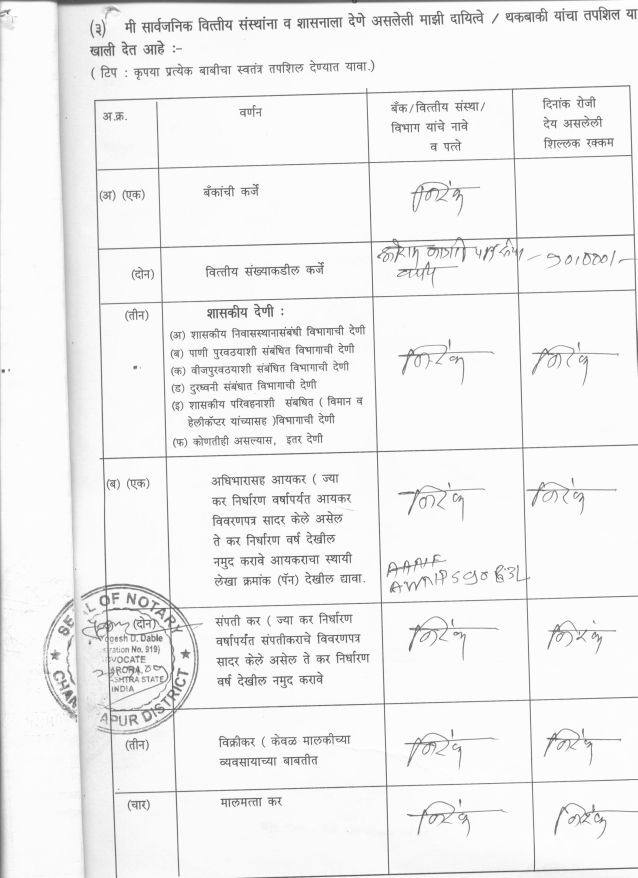 (३) मी सार्वजनिक वित्तीय संस्थांना व शासनाला देणे असलेली माझी दायित्वे / थकबाकी यांचा तपशिल या
खाली देत आहे :-
( टिप : कृपया प्रत्येक बाबीचा स्वतंत्र तपशिल देण्यात यावा.)
अ.क्र. वर्णन बँक/वित्तीय संस्था/ दिनांक रोजी
विभाग यांचे नावे देय असलेली
व पत्ते शिल्लक रक्कम
(अ) (एक) बँकांची कर्जे निरंक
(दोन) वित्तीय संख्याकडील कर्जे
(तीन) शासकीय देणी :
(अ) शासकीय निवासस्थानासंबंधी विभागाची देणी
(ब) पाणी पुरवठयाशी संबंधित विभागाची देणी
(क) वीजपुरवठयाशी संबंधित विभागाची देणी निरंक निरंक
(ड) दुरध्वनी संबंधात विभागाची देणी
(इ) शासकीय परिवहनाशी संबधित ( विमान व
हेलीकॉप्टर यांच्यासह )विभागाची देणी
(फ) कोणतीही असल्यास, इतर देणी
(ब) (एक) अधिभारासह आयकर ( ज्या निरंक निरंक
कर निर्धारण वर्षापर्यत आयकर
विवरणपत्र सादर केले असेल
ते कर निर्धारण वर्ष देखील
नमुद करावे आयकराचा स्थायी
लेखा क्रमांक (पॅन) देखील द्यावा.
SEAL OF NOTARY
(दोन) संपती कर ( ज्या कर निर्धारण निरंक निरंक
वर्षापर्यंत संपतीकराचे विवरणपत्र
सादर केले असेल ते कर निर्धारण
वर्ष देखील नमुद करावे
ogesh D. Dable
ration No. 919)
VOCATE
ARORA
SHTRA STATE
INDIA
APUR DISTRICT
(तीन) विक्रीकर ( केवळ मालकीच्या निरंक निरंक
व्यवसायाच्या बाबतीत
(चार) मालमत्ता कर निरंक निरंक